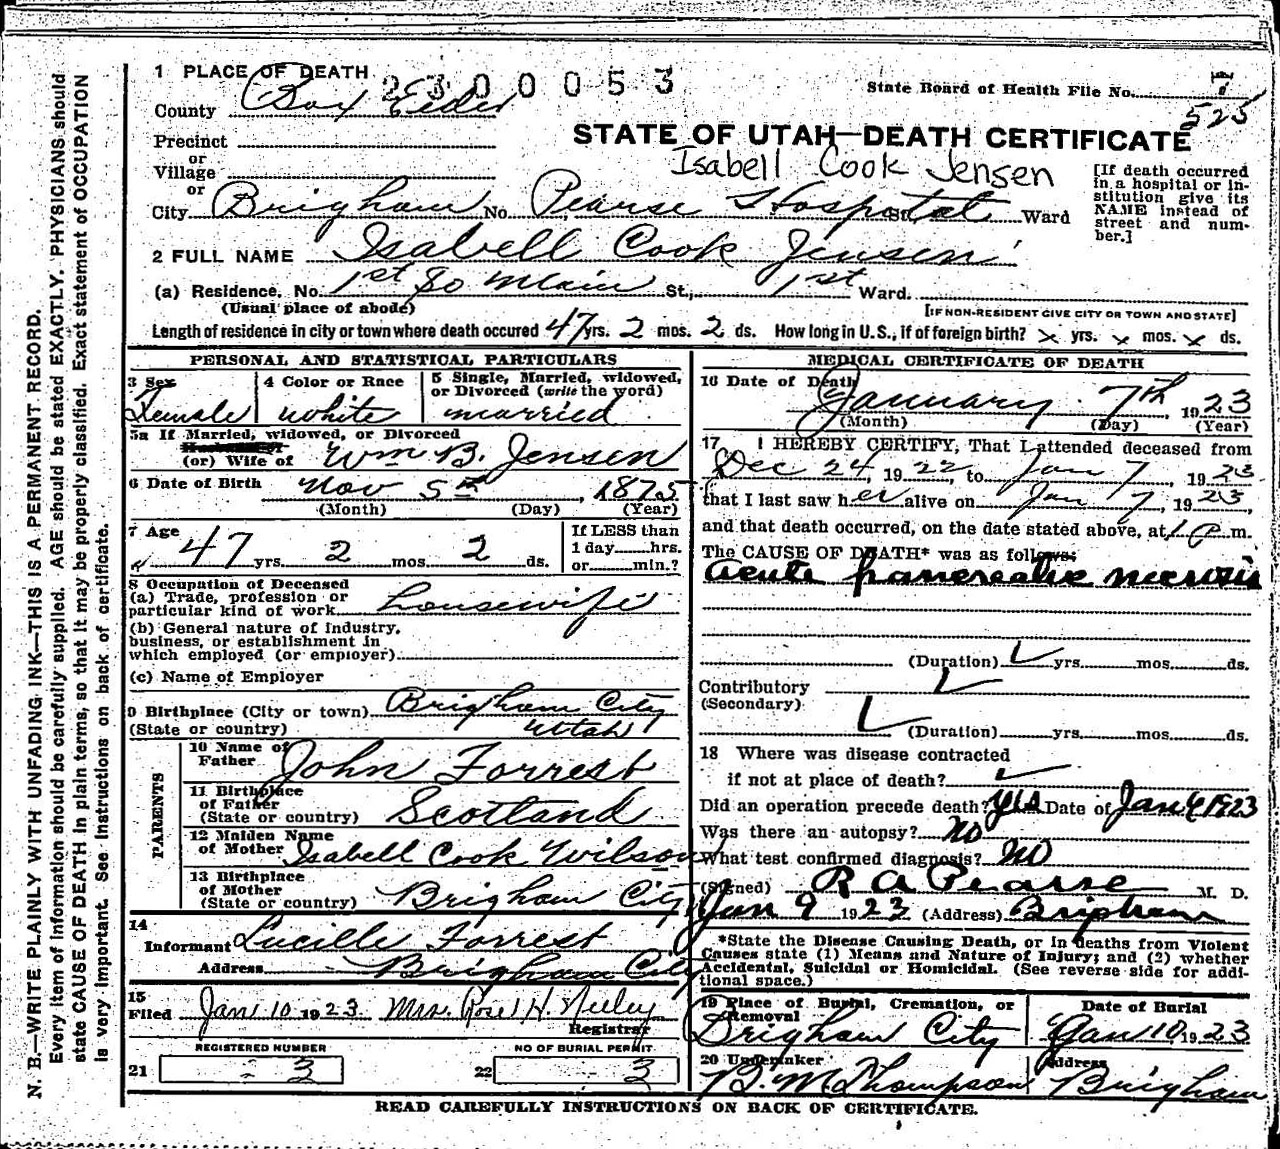 1 PLACE OF DEATH 2300053
State Board of Health File No. 525
County Box Elder
STATE OF UTAH—DEATH CERTIFICATE
Precinct
or
Village
or
Isabell Cook Jensen
[If death occurred in a hospital or institution give its NAME instead of street and number.]
City Brigham No. Pearse Hospital St. Ward
2 FULL NAME Isabell Cook Jensen
(a) Residence. No. 1st So Main St., 1st Ward.
(Usual place of abode) [IF NON-RESIDENT GIVE CITY OR TOWN AND STATE]
Length of residence in city or town where death occured 47 yrs. 2 mos. 2 ds. How long in U.S., if of foreign birth? x yrs. x mos. x ds.
PERSONAL AND STATISTICAL PARTICULARS
3 Sex Female
4 Color or Race white
5 Single, Married, widowed, or Divorced (write the word) married
5a If Married, widowed, or Divorced
(or) Wife of Wm B. Jensen
6 Date of Birth Nov 5th, 1875
(Month) (Day) (Year)
7 Age 47 yrs. 2 mos. 2 ds.
If LESS than
1 day hrs.
or min.?
8 Occupation of Deceased
(a) Trade, profession or
particular kind of work housewife
(b) General nature of Industry,
business, or establishment in
which employed (or employer)
(c) Name of Employer
9 Birthplace (City or town) Brigham City
(State or country) Utah
PARENTS
10 Name of
Father John Forrest
11 Birthplace
of Father
(State or country) Scotland
12 Maiden Name
of Mother Isabell Cook Wilson
13 Birthplace
of Mother
(State or country) Brigham City
14
Informant Lucille Forrest
Address Brigham City
15
Filed Jan 10 1923 Mrs. Rose H. Neeley
Registrar
REGISTERED NUMBER NO OF BURIAL PERMIT
21 3 22 3
MEDICAL CERTIFICATE OF DEATH
16 Date of Death January 7th, 1923
(Month) (Day) (Year)
17 I HEREBY CERTIFY, That I attended deceased from
Dec 24, 1922, to Jan 7, 1923
that I last saw her alive on Jan 7, 1923,
and that death occurred, on the date stated above, at 1 P m.
The CAUSE OF DEATH* was as follows:
Acute pancreatic necrosis
(Duration) yrs. mos. ds.
Contributory
(Secondary)
(Duration) yrs. mos. ds.
18 Where was disease contracted
if not at place of death?
Did an operation precede death? yes Date of Jan 1923
Was there an autopsy? no
What test confirmed diagnosis? no
(Signed) R A Pearse M. D.
Jan 9 1923 (Address) Brigham
*State the Disease Causing Death, or in deaths from Violent
Causes state (1) Means and Nature of Injury; and (2) whether
Accidental, Suicidal or Homicidal. (See reverse side for addi-
tional space.)
19 Place of Burial, Cremation, or
Removal
Brigham City
Date of Burial
Jan 10 1923
20 Undertaker
B. M Thompson
Address
Brigham
READ CAREFULLY INSTRUCTIONS ON BACK OF CERTIFICATE.
N. B.—WRITE PLAINLY WITH UNFADING INK—THIS IS A PERMANENT RECORD.
Every item of information should be carefully supplied. AGE should be stated EXACTLY. PHYSICIANS should
state CAUSE OF DEATH in plain terms, so that it may be properly classified. Exact statement of OCCUPATION
is very important. See instructions on back of certificate.